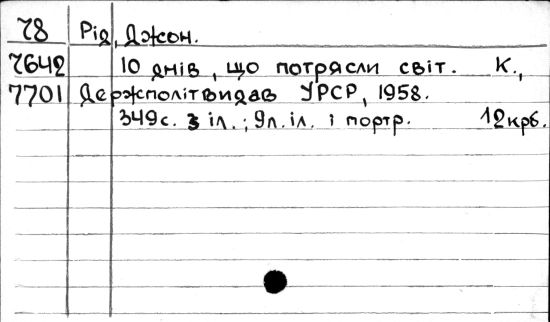 78 Рід, Джон.
7642 10 днів, що потрясли світ. К.,
7701 Держполітвидав УРСР, 1958.
349с. з іл.; 9л. іл. і портр. 12крб.